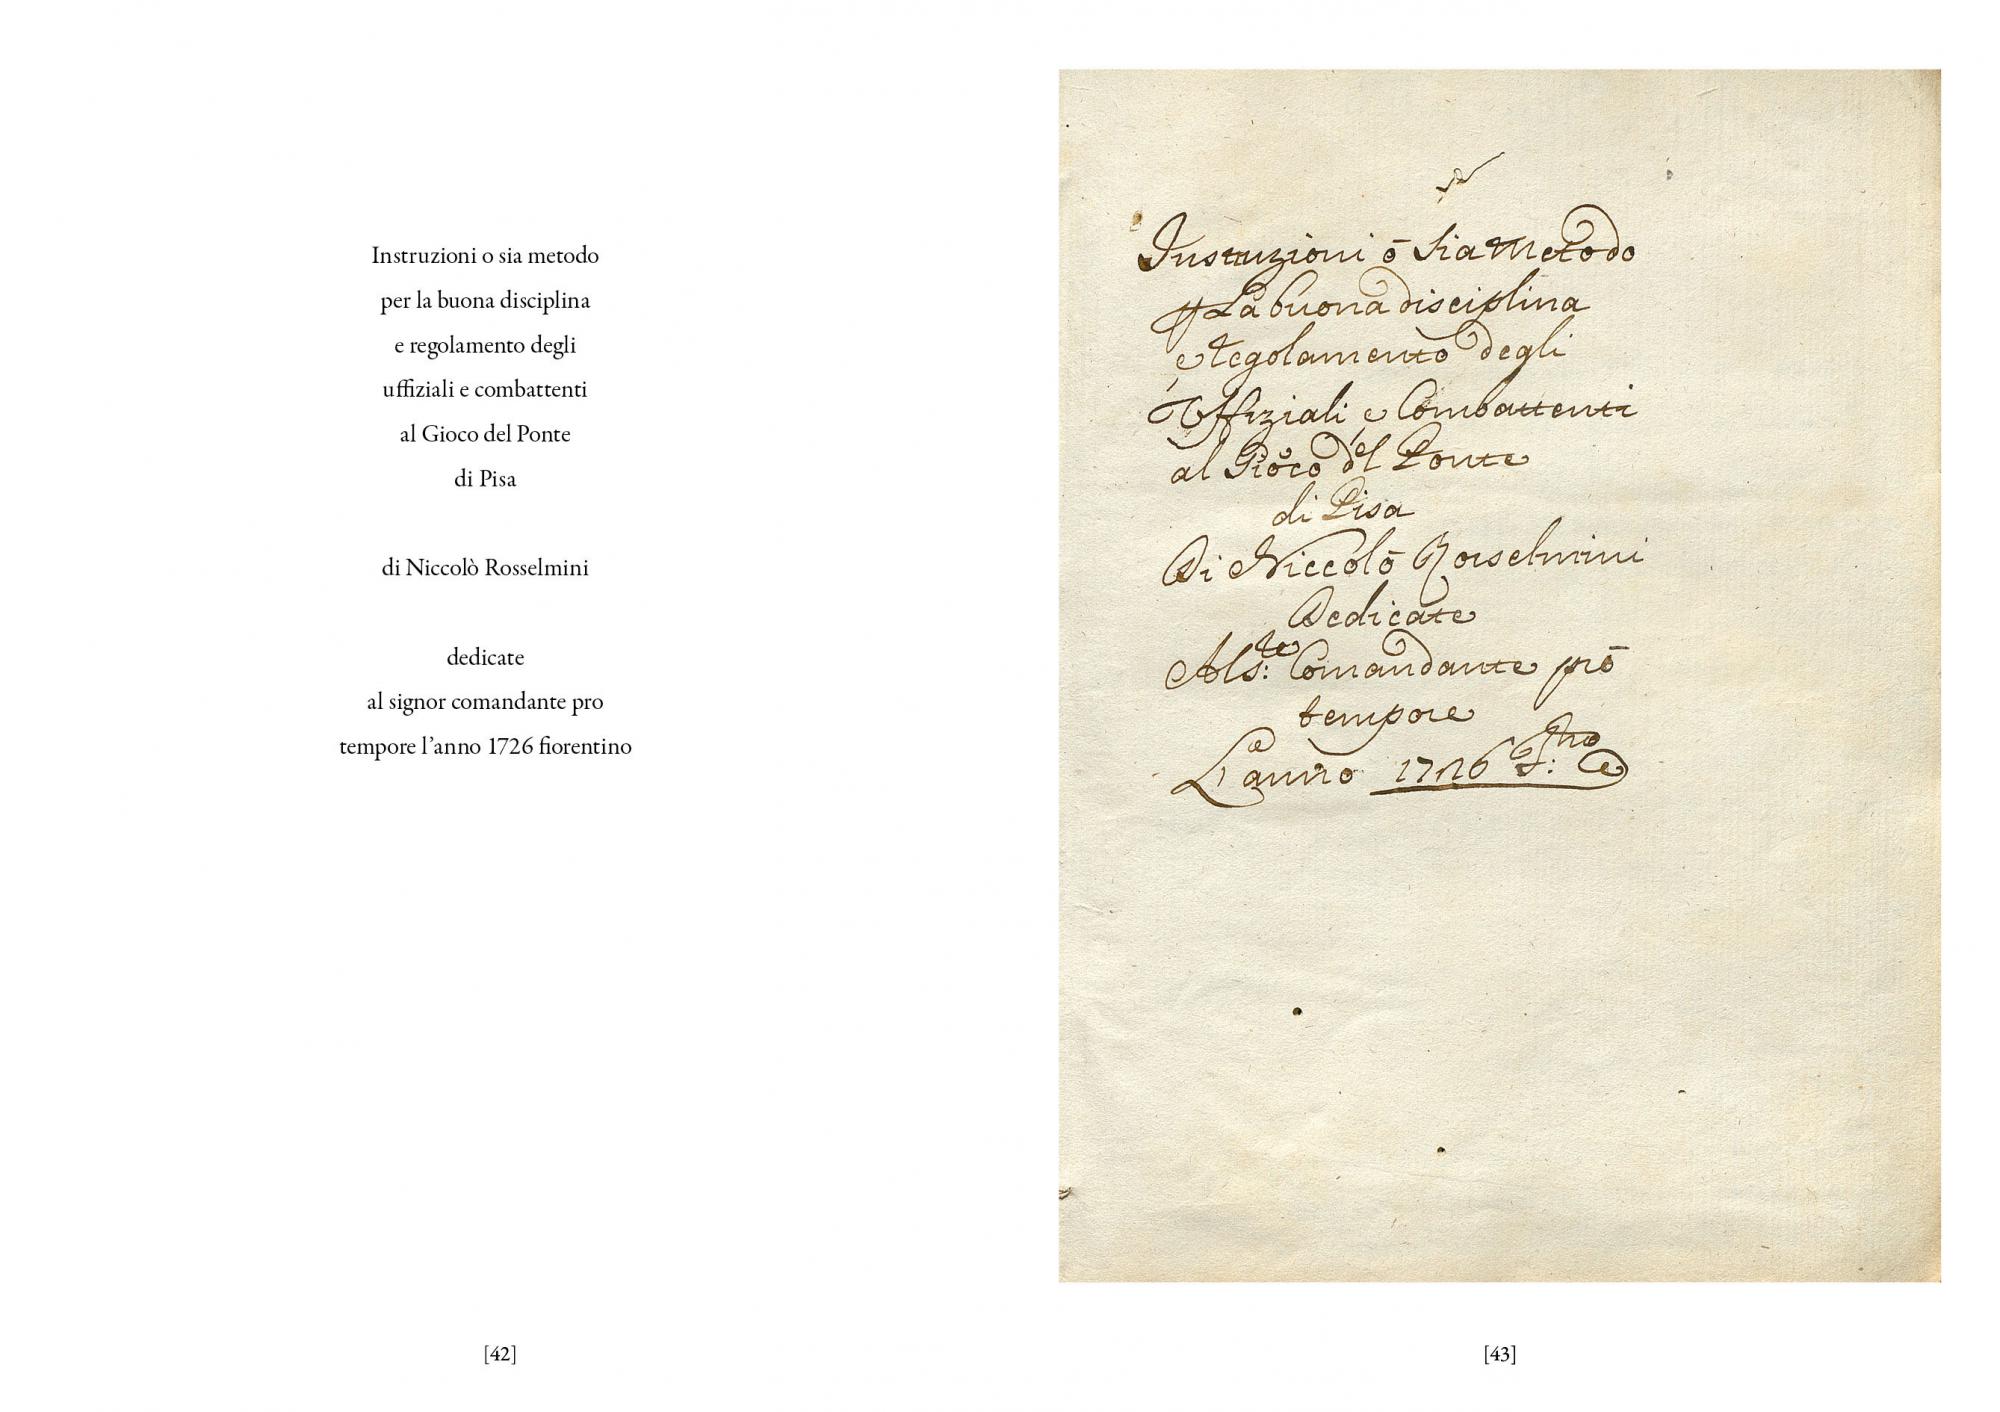 Instruzioni o sia metodo
per la buona disciplina
e regolamento degli
uffiziali e combattenti
al Gioco del Ponte
di Pisa
di Niccolò Rosselmini
dedicate
al signor comandante pro
tempore l’anno 1726 fiorentino
[42]
Instruzioni ò sia Metodo
La buona disciplina
e regolamento degli
Uffiziali e Combattenti
al Gioco del Ponte
di Pisa
Di Niccolò Rosselmini
Dedicate
Al S:re Comandante prō
tempore
L'anno 1726
[43]